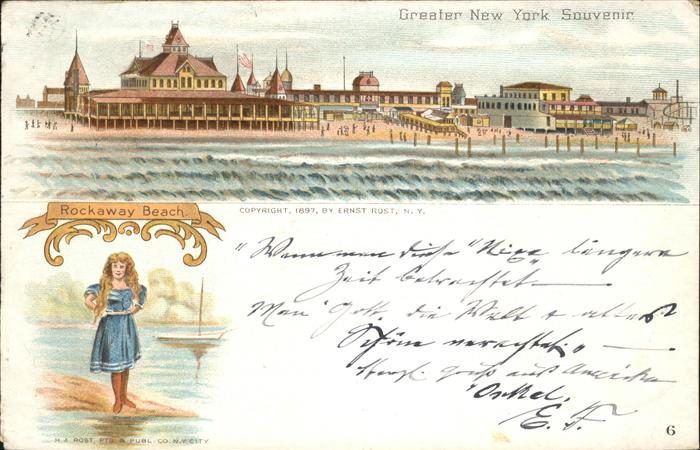 Greater New York Souvenir.
Rockaway Beach.
COPYRIGHT, 1897, BY ERNST ROST, N. Y.
"Wenn man diese "Nixe längere
Zeit betrachtet.
Man Gott, die Welt + alles
Schöne verachtet."
Herzl. Gruß aus Amerika
Onkel.
E. F.
H. A. ROST, PTG. & PUBL. CO. N.Y. CITY
6